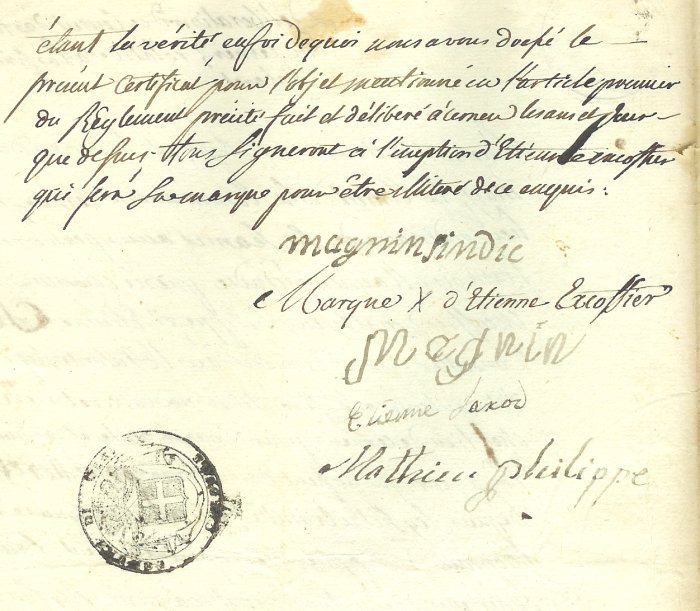 étant la vérité en foi de quoi nous avons dressé le
présent Certificat pour l'objet mentionné en l'article premier
du Réglement précité fait et délibéré à les an et jour
que dessus. Tous signeront à l'exception d'Etienne Excoffier
qui fera sa marque pour être illitéré de ce enquis :
magnin sindic
Marque X d'Etienne Excoffier
Magnin
Etienne Saxod
Mathieu philippe